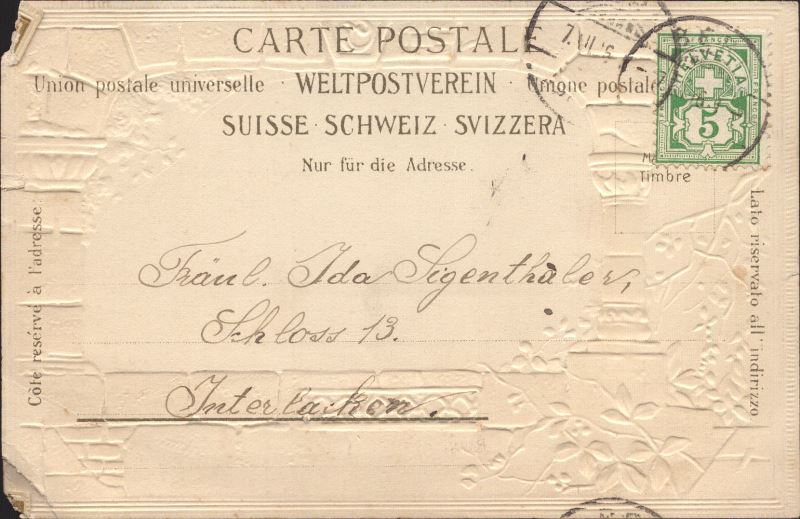 CARTE POSTALE
Union postale universelle · WELTPOSTVEREIN · Unione postale
SUISSE · SCHWEIZ · SVIZZERA
Nur für die Adresse.
FRANCO
HELVETIA
5
Timbre
Côté réservé à l'adresse.
Lato riservato all' indirizzo
Fräul. Ida Sigenthaler,
Schloss 13.
Interlacken.